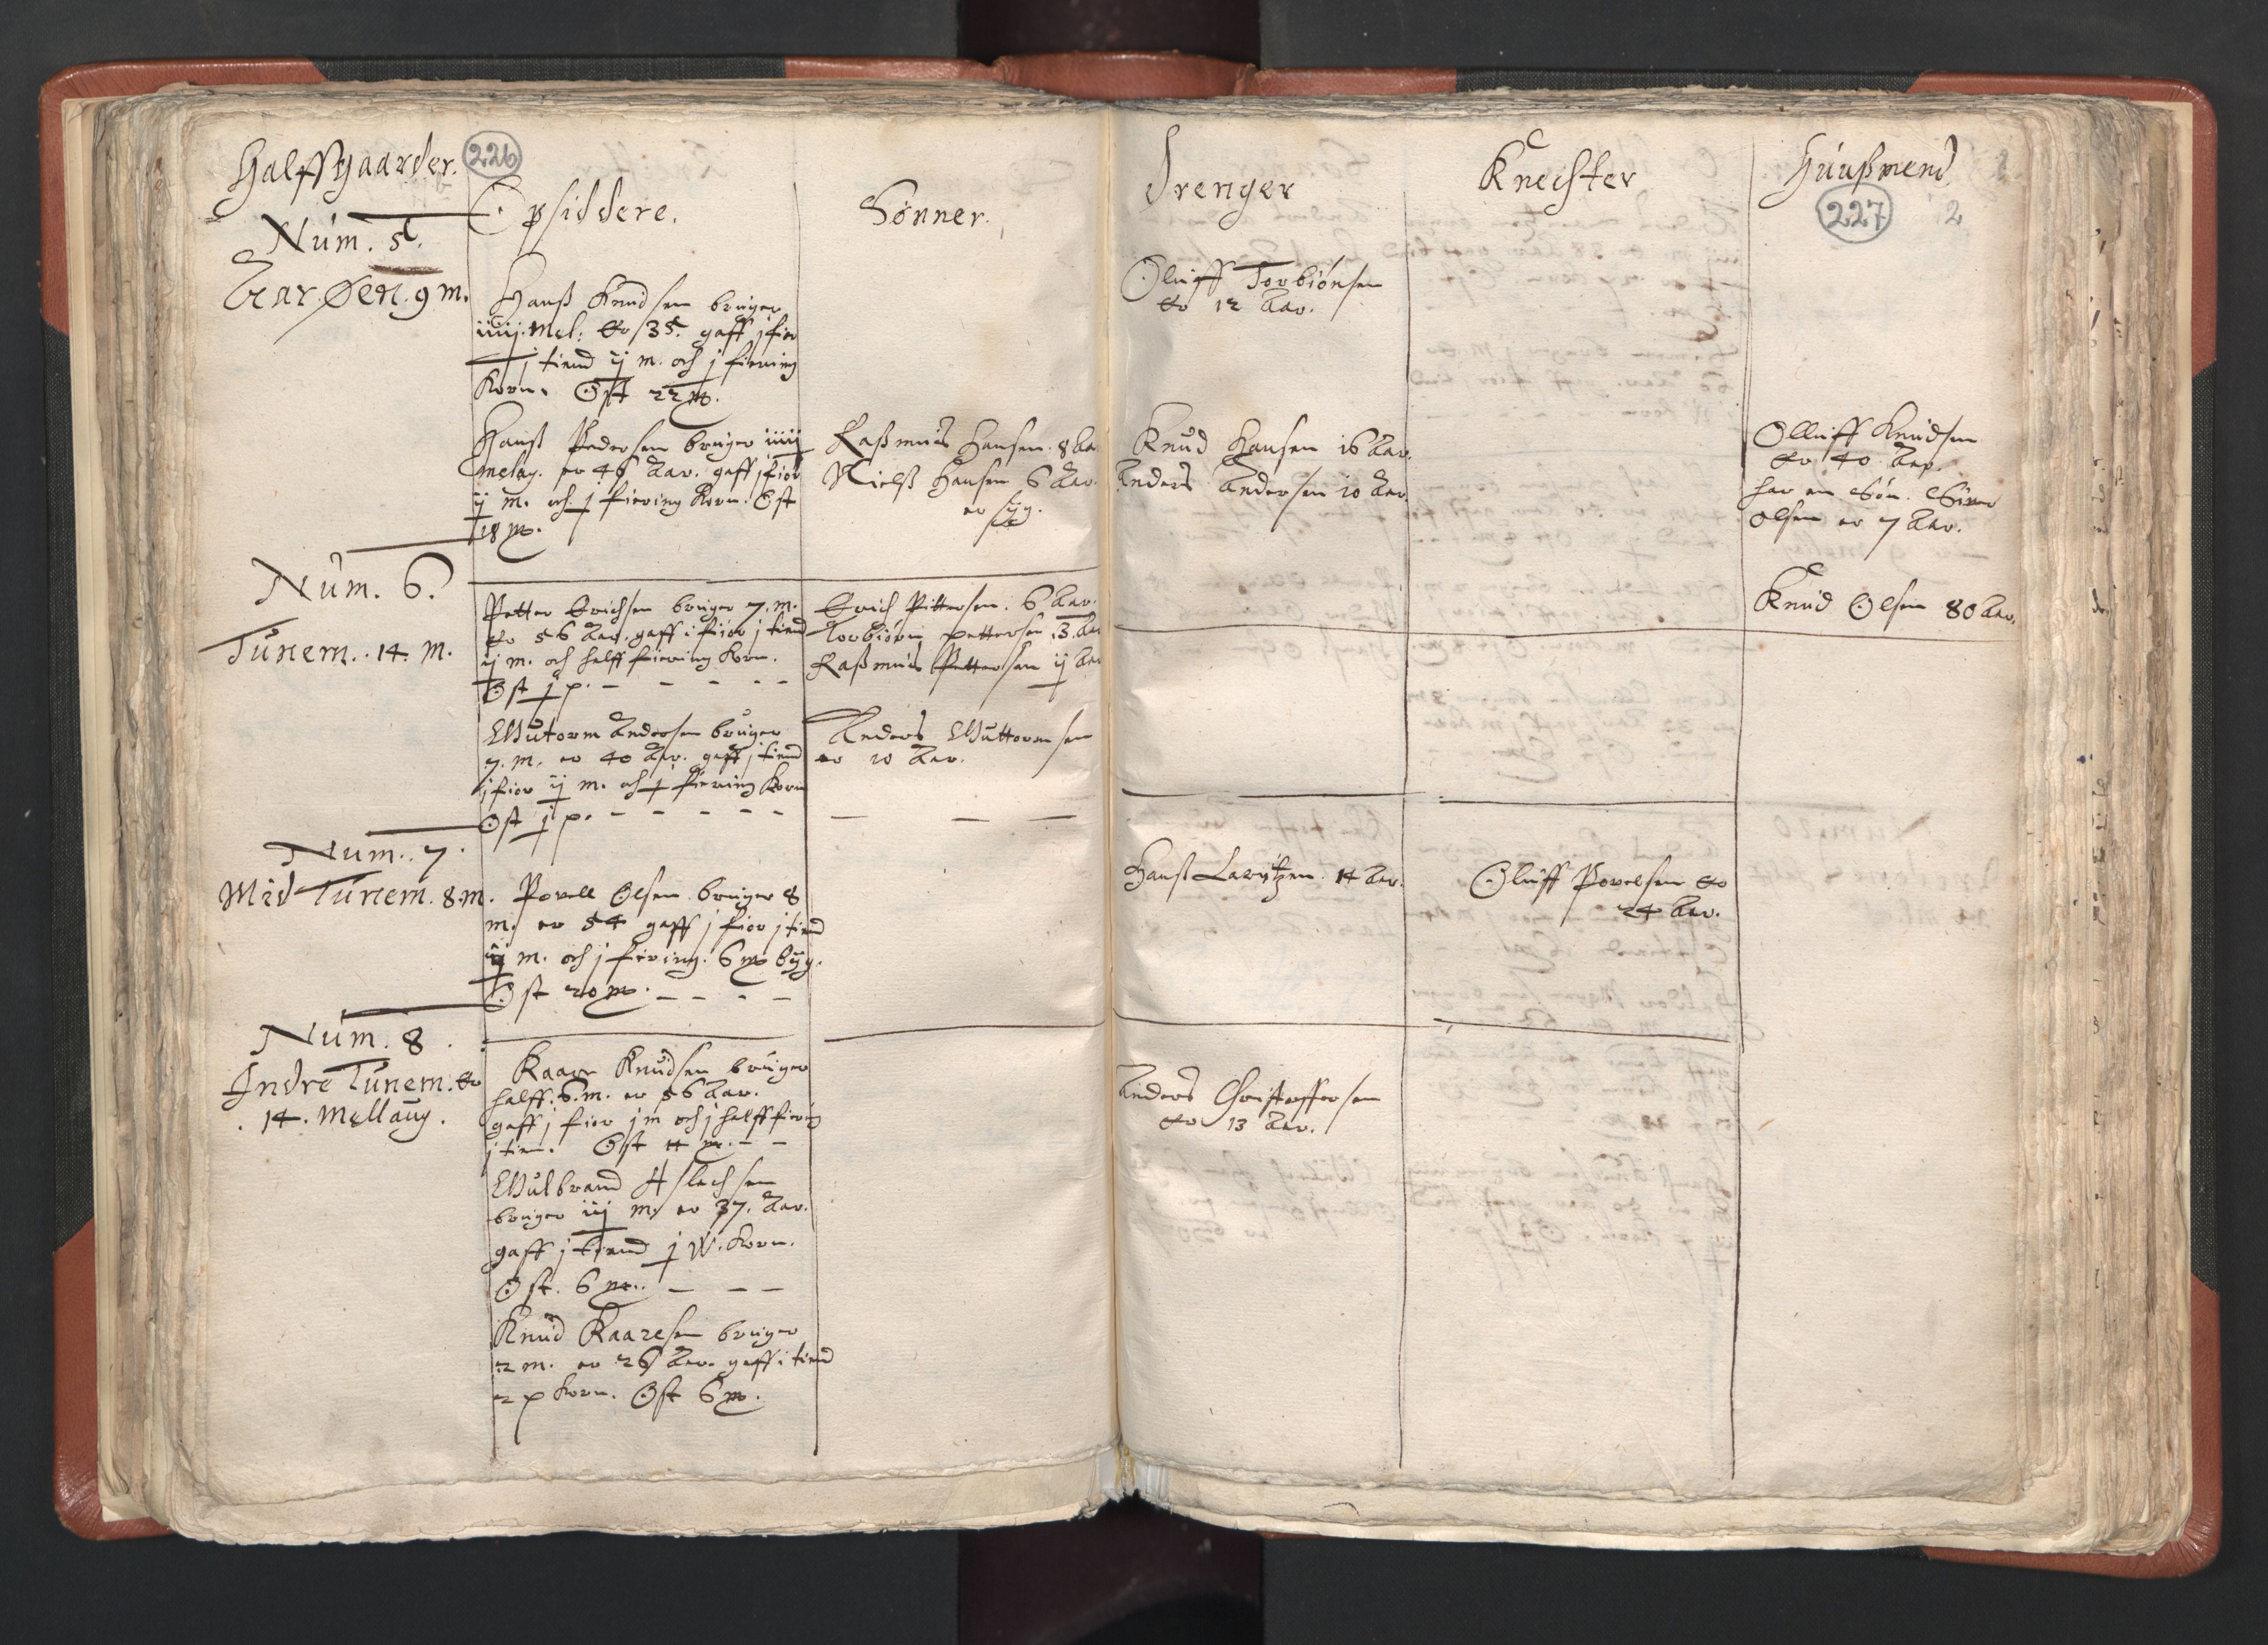 Halffgaarder.
226
Num. 5.
Aar Øen. 9 m.
Opsiddere.
Hanß Knudsen bruger
iiiij. Mel: er 35. gaff j fior
j tiend ij m. och j fiering
Korn. Ost 22 m.
Hanß Pedersen bruger iiiij
melag. er 46 Aar. gaff j fior
ij m. och j fiering Korn. Ost
18 m.
Num. 6.
Tunem. 14. m.
Petter Erichsen bruger 7. m.
er 56 Aar. gaff i fior j tiend
ij m. och halff fiering Korn.
Ost j p. - - - - -
Guttorm Andersen bruger
7. m. er 40 Aar. gaff j tiend
j fior ij m. och j fiering Korn
Ost j p. - - - - -
Num. 7.
Mid Tunem. 8. m.
Povell Olsen bruger 8
m. er 54 gaff j fior j tiend
ij m. och j fiering. 6 m byg.
Ost 20 m. - - - -
Num. 8.
Indre Tunem. er
14. Mellaug.
Kaare Knudsen bruger
halff. 6. m. er 56 Aar.
gaff j fior j m och j halff fiering
j tien. Ost 11 m. - -
Gulbrand Aslechsen
bruger iij m. er 37. Aar.
gaff j tiend j W. Korn.
Ost. 6 m. - - -
Knud Kaaresen bruger
2 m. er 26 Aar. gaff i tiend
2 p Korn. Ost 6 m.
Sønner.
Raßmus Hansen. 8 Aar
Nielß Hansen 6 Aar.
er syg.
Erich Pittersen. 6 Aar.
Torbiørn pettersen 13. Aar
Raßmus Pettersen ij Aar
Anders Guttormsen
er 10 Aar.
Drenger
Oluff Torbiønsen
er 12 Aar.
Knud Hansen 16 Aar.
Anders Andersen 10 Aar
Hanß Laritzen. 14 Aar.
Anders Christoffersen
er 13 Aar.
Knechter
Oluff Povelsen er
24 Aar.
Huußmend
227
2
Olluff Knudsen
er 40 Aar.
har en Søn. Siver
Olsen er 7 Aar.
Knud Olsen 80 Aar.